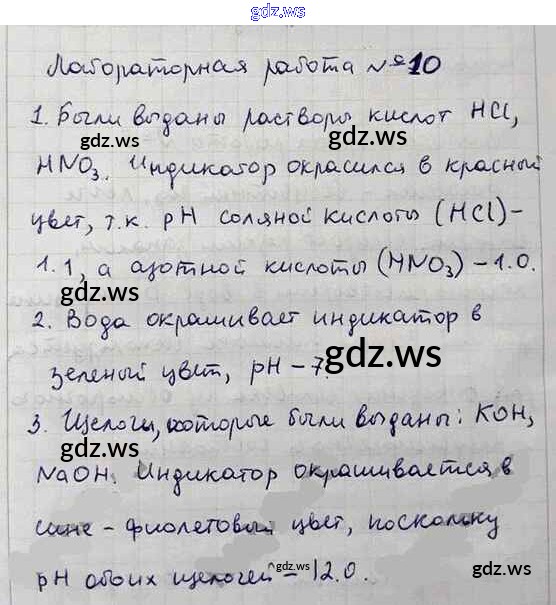 gdz.ws
Лабораторная работа №10
1. Были выданы растворы кислот HCl,
gdz.ws gdz.ws
HNO3. Индикатор окрасился в красный
цвет, т.к. pH соляной кислоты (HCl)-
1.1, а азотной кислоты (HNO3) - 1.0.
gdz.ws gdz.ws
2. Вода окрашивает индикатор в
зеленый цвет, pH - 7.
gdz.ws
3. Щелочи, которые были выданы: KOH,
gdz.ws
NaOH. Индикатор окрашивается в
сине-фиолетовый цвет, поскольку
pH обоих щелочей - 12.0.
gdz.ws gdz.ws